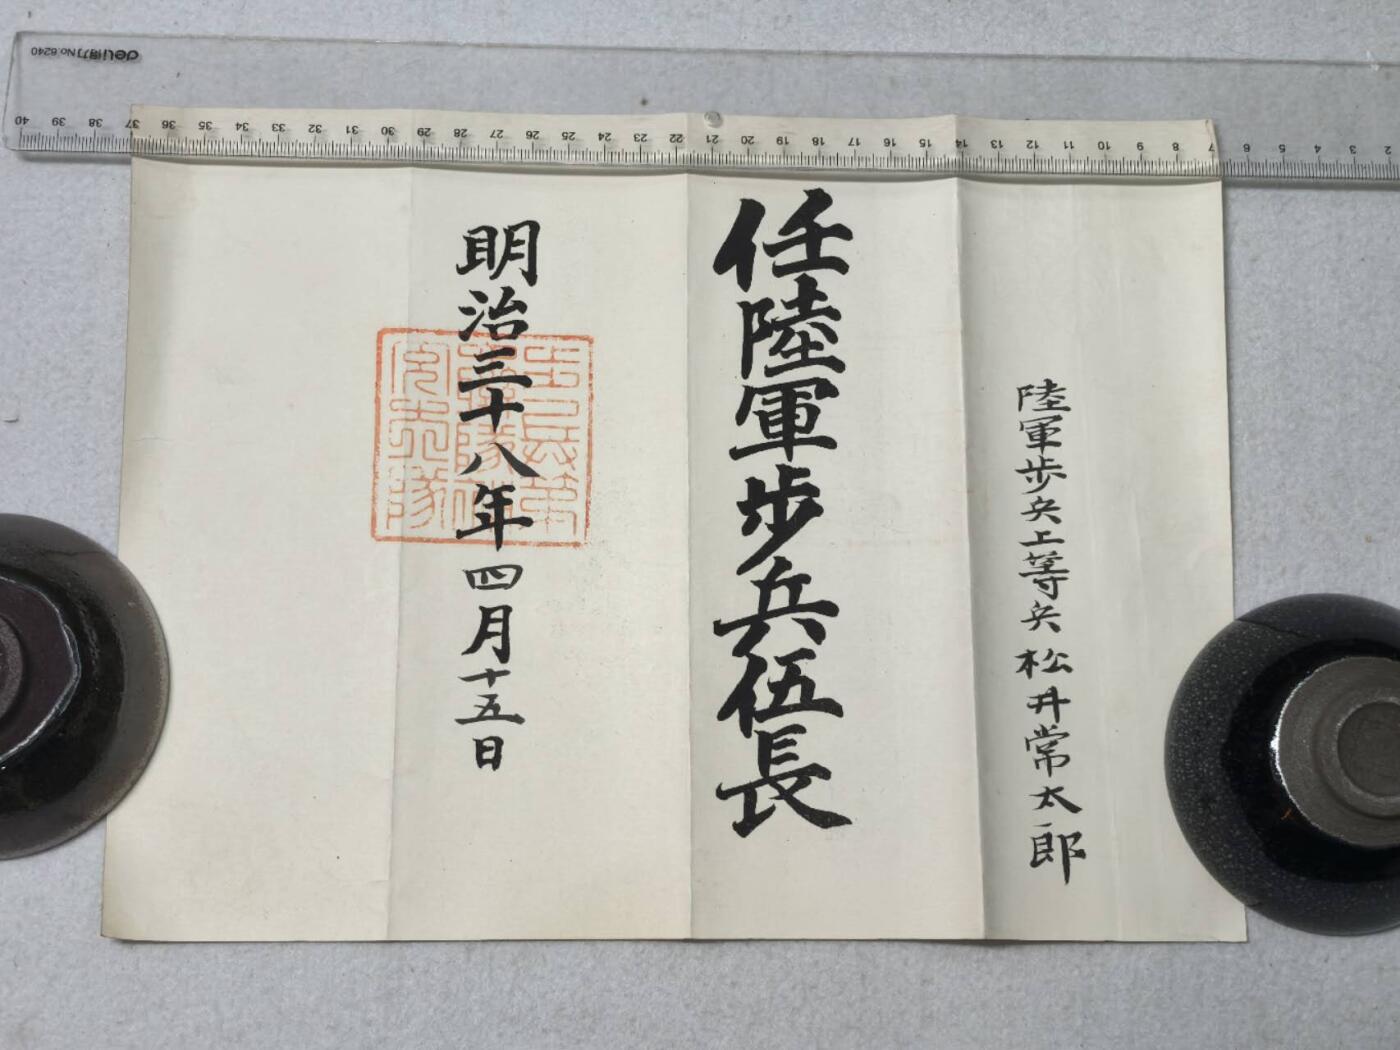 陸軍歩兵上等兵 松井常太郎
任陸軍歩兵伍長
明治三十八年四月十五日
deli得力 No.6240
40 39 38 37 36 35 34 33 32 31 30 29 28 27 26 25 24 23 22 21 20 19 18 17 16 15 14 13 12 11 10 9 8 7 6 5 4 3 2